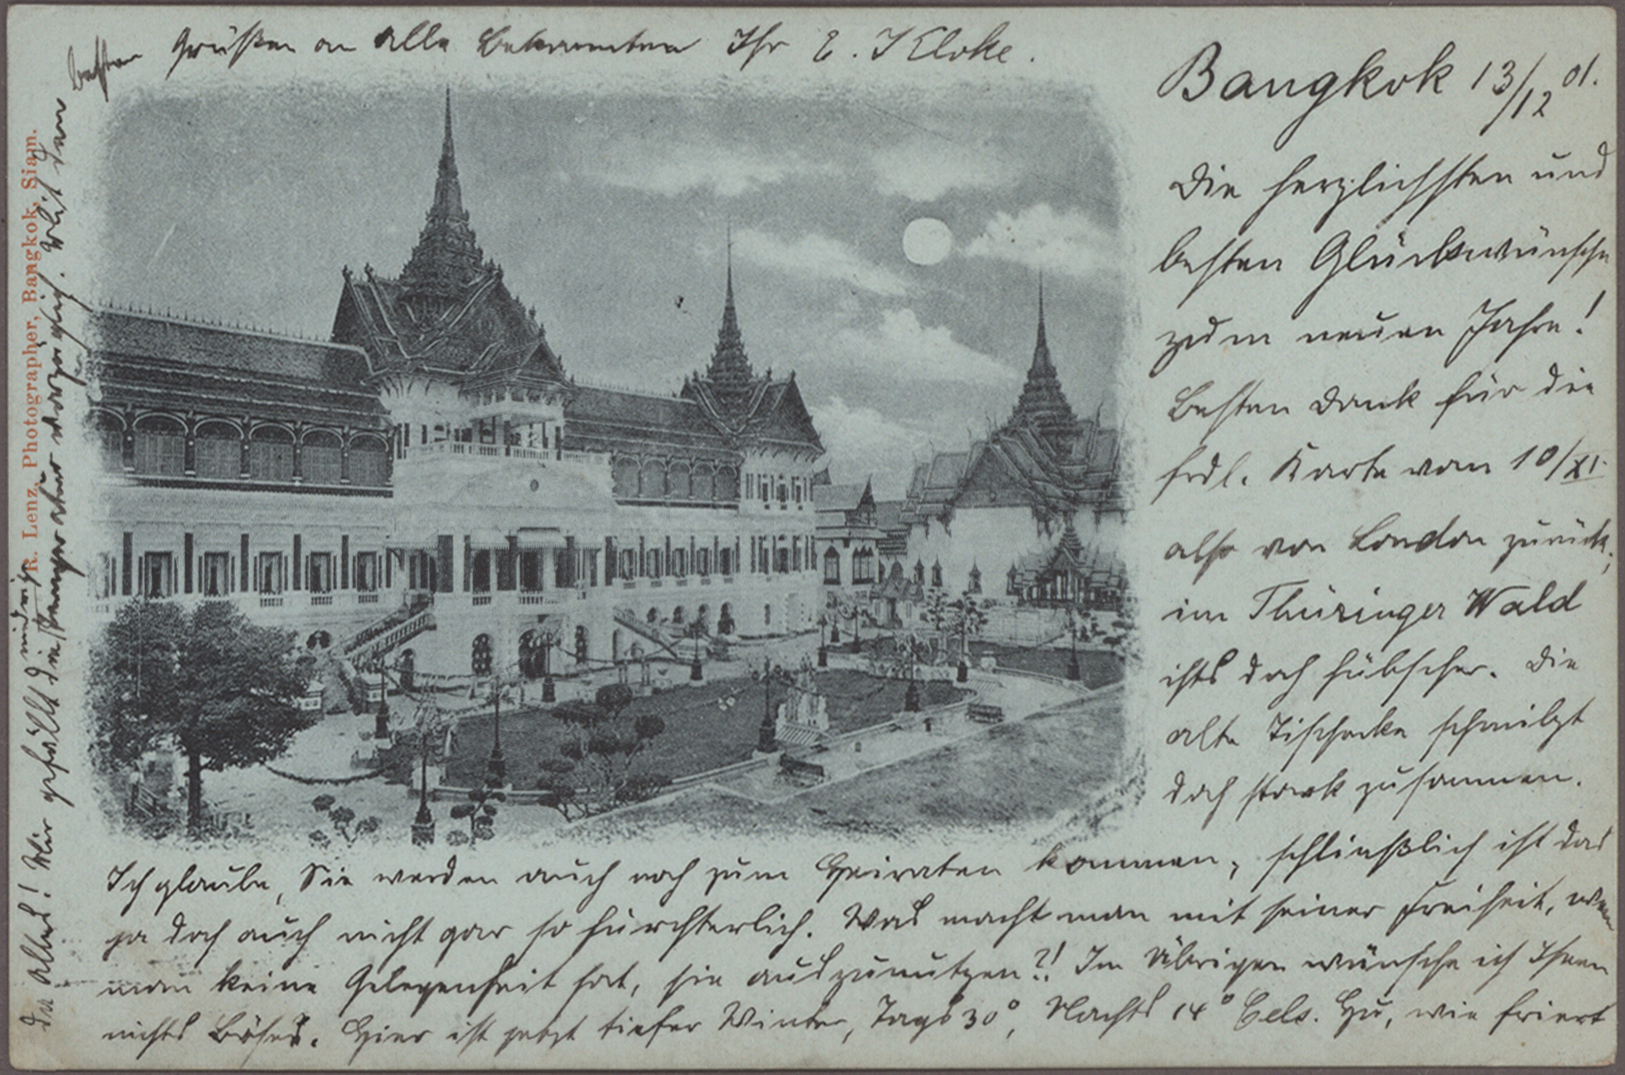 Bangkok 13/12 01.
Die herzlichsten und
besten Glückwünsche
zum neuen Jahre!
Besten Dank für die
frdl. Karte vom 10/XI.
also von London zurück,
im Thüringer Wald
ists doch hübscher. Die
alte Tischecke schmilzt
doch stark zusammen.
Ich glaube, Sie werden auch noch zum Heiraten kommen, schließlich ist das
ja doch auch nicht gar so fürchterlich. Was macht man mit seiner Freiheit, wenn
man keine Gelegenheit hat, sie auszunutzen?! Im Übrigen wünsche ich Ihnen
nichts Böses. Hier ist jetzt tiefer Winter, Tags 30°, Nachts 14° Cels. Hu, wie friert
da Alles! Mir gefällt die
aber vorzüglich. Mit den
besten Grüßen an alle Bekannten Ihr E. J Kloke.
R. Lenz, Photographer, Bangkok, Siam.